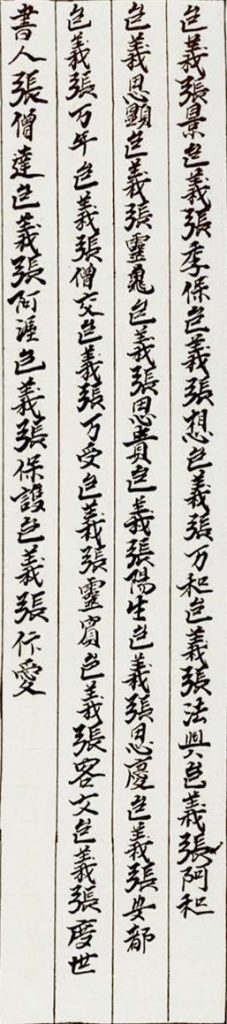 邑義張景邑義張季保邑義張想邑義張万和邑義張法興邑義張阿和
邑義思顯邑義張靈鳳邑義張思貴邑義張陽生邑義張思慶邑義張安都
邑義張万年邑義張僧交邑義張万受邑義張靈賓邑義張客文邑義張慶世
書人張僧達邑義張阿邑義張保邑義張愛